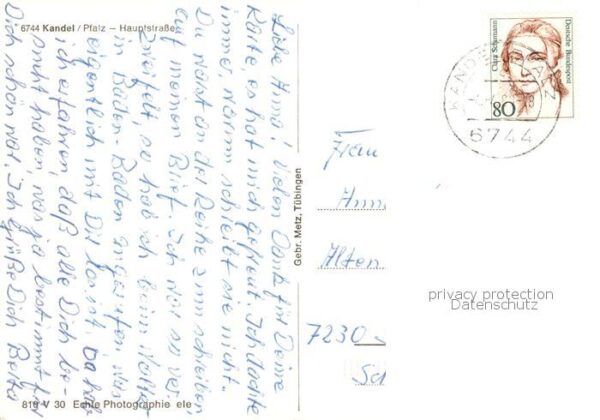 6744 Kandel / Pfalz – Hauptstraße
Liebe Anna! Vielen Dank für Deine
Karte es hat mich gefreut. Ich dachte
immer warum schreibt sie nicht.
Du warst an der Reihe zum schreiben,
auf meinen Brief. Ich war so ver-
zweifelt, so hab ich beim
in Baden-Baden angerufen, was
eigentlich mit Dir los ist. Da hab
ich erfahren, daß alle Dich be-
sucht haben, was ja bestimmt für
Dich schön war. Ich grüße Dich Berta
816 V 30 Echte Photographie ele
Gebr. Metz, Tübingen
Clara Schumann
Deutsche Bundespost
80
KANDEL
6744
Frau
Anna
Alten
7230
Sc
privacy protection
Datenschutz